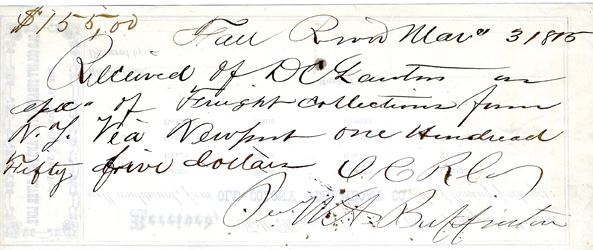 $155,00
Fall River Mar 3 1875
Received of D C Lawton on
of Freight collections from
N.Y. Via Newport one Hundread
Fifty five dollars O C R Co
Per W H Buffinton
Received,